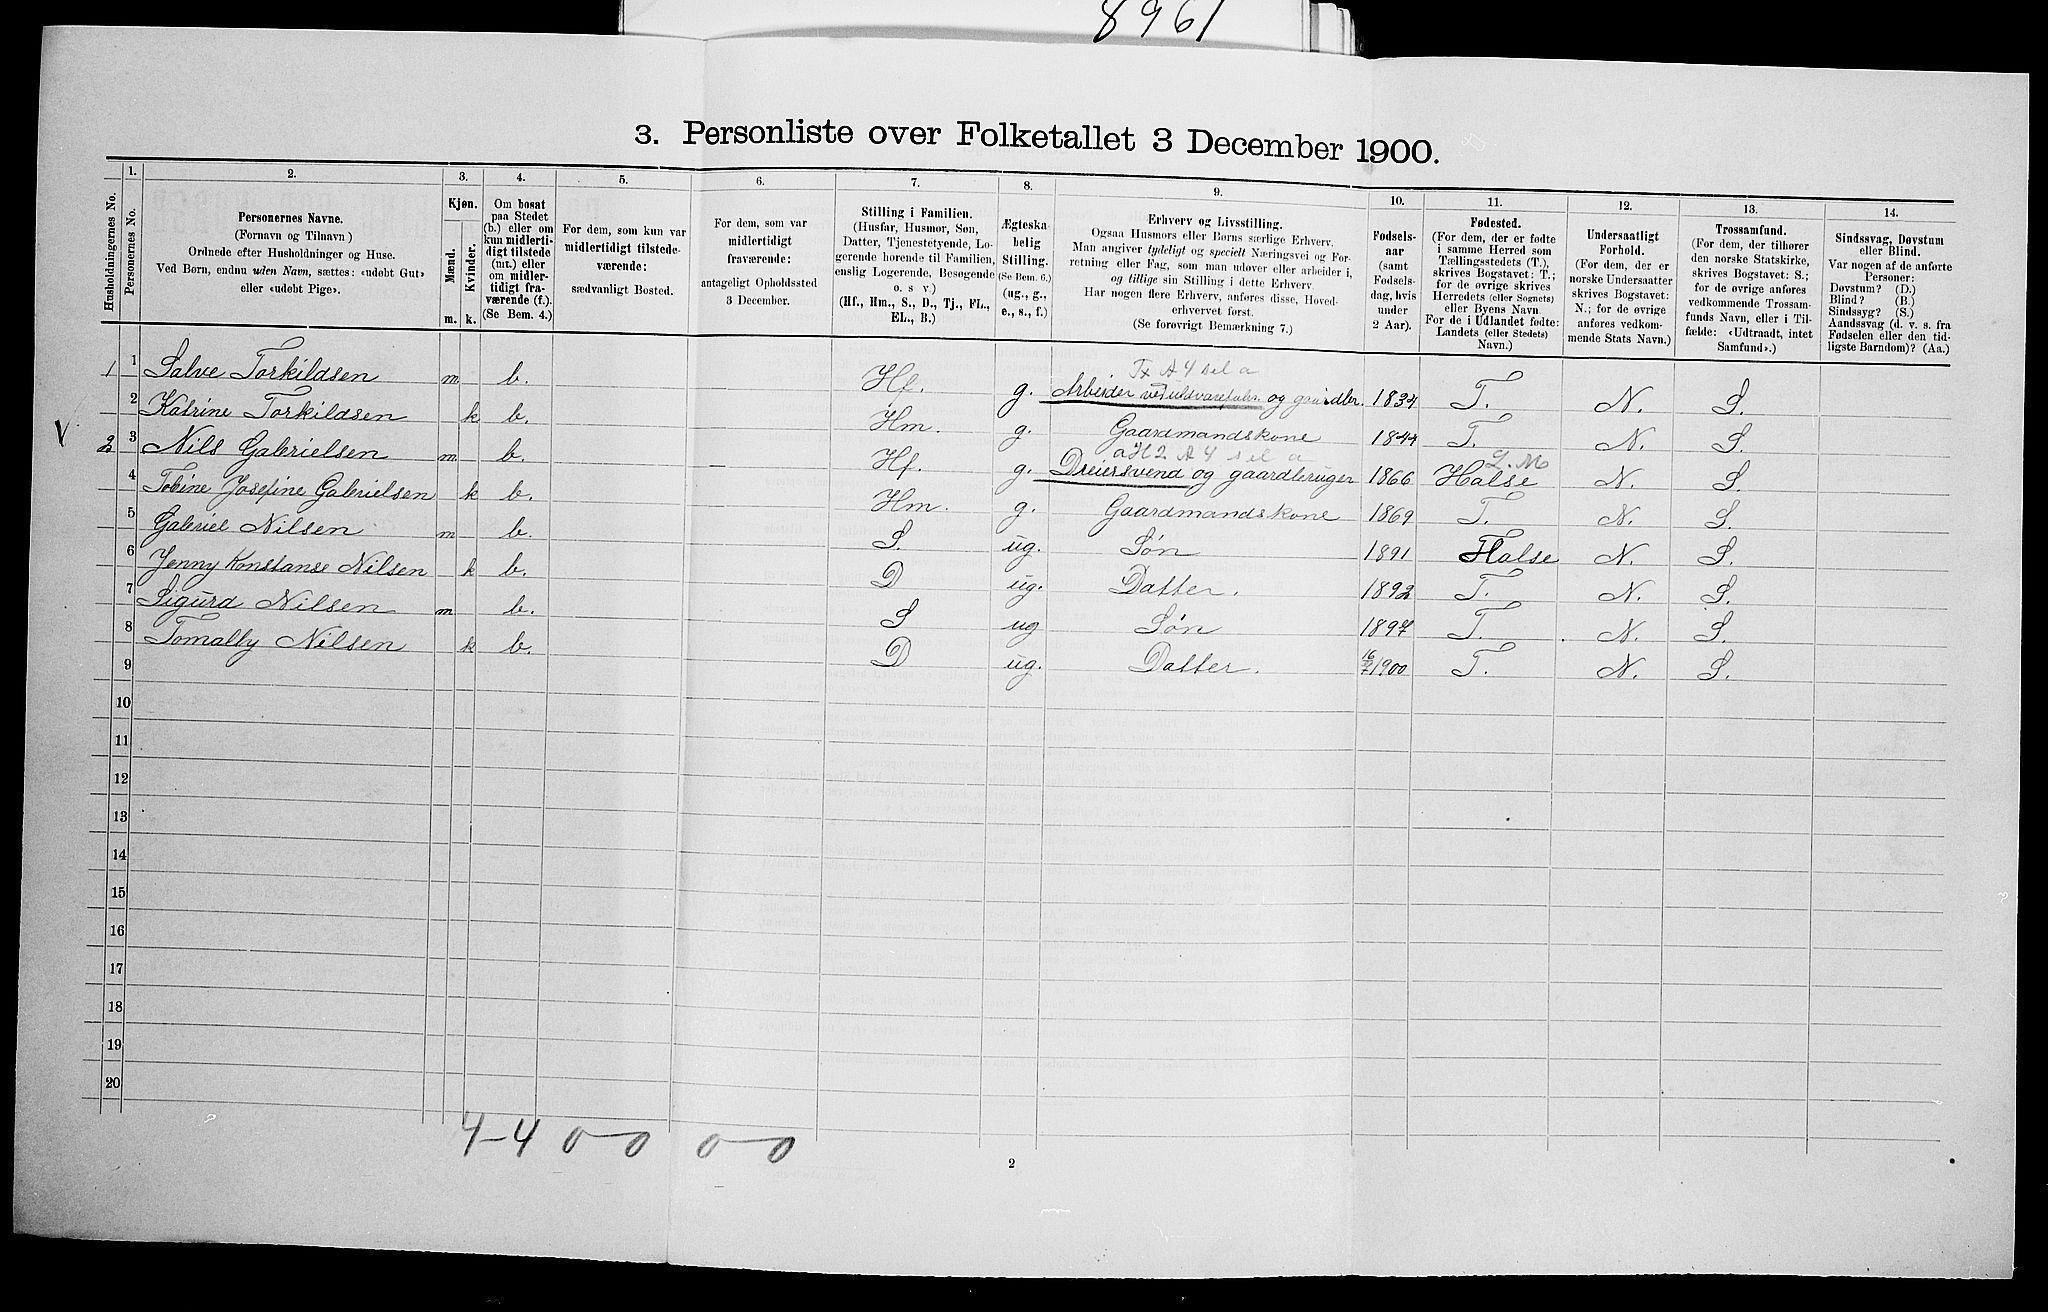 8961
3. Personliste over Folketallet 3 December 1900.
Husholdningernes No.
1.
Personernes No.
2.
Personernes Navne.
(Fornavn og Tilnavn)
Ordnede efter Husholdninger og Huse.
Ved Børn, endnu uden Navn, sættes: «udøbt Gut»
eller «udøbt Pige».
3.
Kjøn.
Mænd.
Kvinder.
m. k.
4.
Om bosat
paa Stedet
(b.) eller om
kun midlerti-
digt tilstede
(mt.) eller
om midler-
tidigt fra-
værende (f.).
(Se Bem. 4.)
5.
For dem, som kun var
midlertidigt tilstede-
værende:
sædvanligt Bosted.
6.
For dem, som var
midlertidigt
fraværende:
antageligt Opholdssted
3 December.
7.
Stilling i Familien.
(Husfar, Husmor, Søn,
Datter, Tjenestetyende, Lo-
gerende hørende til Familien,
enslig Logerende, Besøgende
o. s v.)
(Hf., Hm., S., D., Tj., FL.,
EL., B.)
8.
Ægteska-
belig
Stilling.
(Se Bem. 6.)
(ug., g.,
e., s., f.)
9.
Erhverv og Livsstilling.
Ogsaa Husmors eller Børns særlige Erhverv.
Man angiver tydeligt og specielt Næringsvei og For-
retning eller Fag, som man udøver eller arbeider i,
og tillige sin Stilling i dette Erhverv.
Har nogen flere Erhverv, anføres disse, Hoved-
erhvervet først.
(Se forøvrigt Bemærkning 7.)
10.
Fødsels-
aar
(samt
Fødsels-
dag, hvis
under
2 Aar).
11.
Fødested.
(For dem, der er fødte
i samme Herred som
Tællingsstedets (T.),
skrives Bogstavet: T.;
for de øvrige skrives
Herredets (eller Sognets)
eller Byens Navn.
For de i Udlandet fødte:
Landets (eller Stedets)
Navn.)
12.
Undersaatligt
Forhold.
(For dem, der er
norske Undersaatter
skrives Bogstavet:
N.; for de øvrige
anføres vedkom-
mende Stats Navn.)
13.
Trossamfund.
(For dem, der tilhører
den norske Statskirke,
skrives Bogstavet: S.;
for de øvrige anføres
vedkommende Trossam-
funds Navn, eller i Til-
fælde: «Udtraadt, intet
Samfund».)
14.
Sindssvag, Døvstum
eller Blind.
Var nogen af de anførte
Personer:
Døvstum? (D.)
Blind? (B.)
Sindssyg? (S.)
Aandssvag (d. v. s. fra
Fødselen eller den tid-
ligste Barndom)? (Aa.)
1 1 Salve Torkildsen m b. Hf. g. Arbeider ved uldvarefabr. og gaardbr. 1834 T. N. S.
2 Katrine Torkildsen k b. Hm. g. Gaardmandskone 1844 T. N. S.
V 2 3 Nils Gabrielsen m b. Hf. g. Dreiersvend og gaardbruger 1866 Halse N. S.
4 Tobine Josefine Gabrielsen k b. Hm. g. Gaardmandskone 1869 T. N. S.
5 Gabriel Nilsen m b. S. ug. Søn 1891 Halse N. S.
6 Jenny Konstanse Nilsen k b. D ug. Datter. 1892 T. N. S.
7 Sigurd Nilsen m b. S ug Søn 1897 T. N. S.
8 Tomalby Nilsen k b. D ug. Datter. 16/7 1900 T. N. S.
9
10
11
12
13
14
15
16
17
18
19
20
4-4 0-0 0-0
2